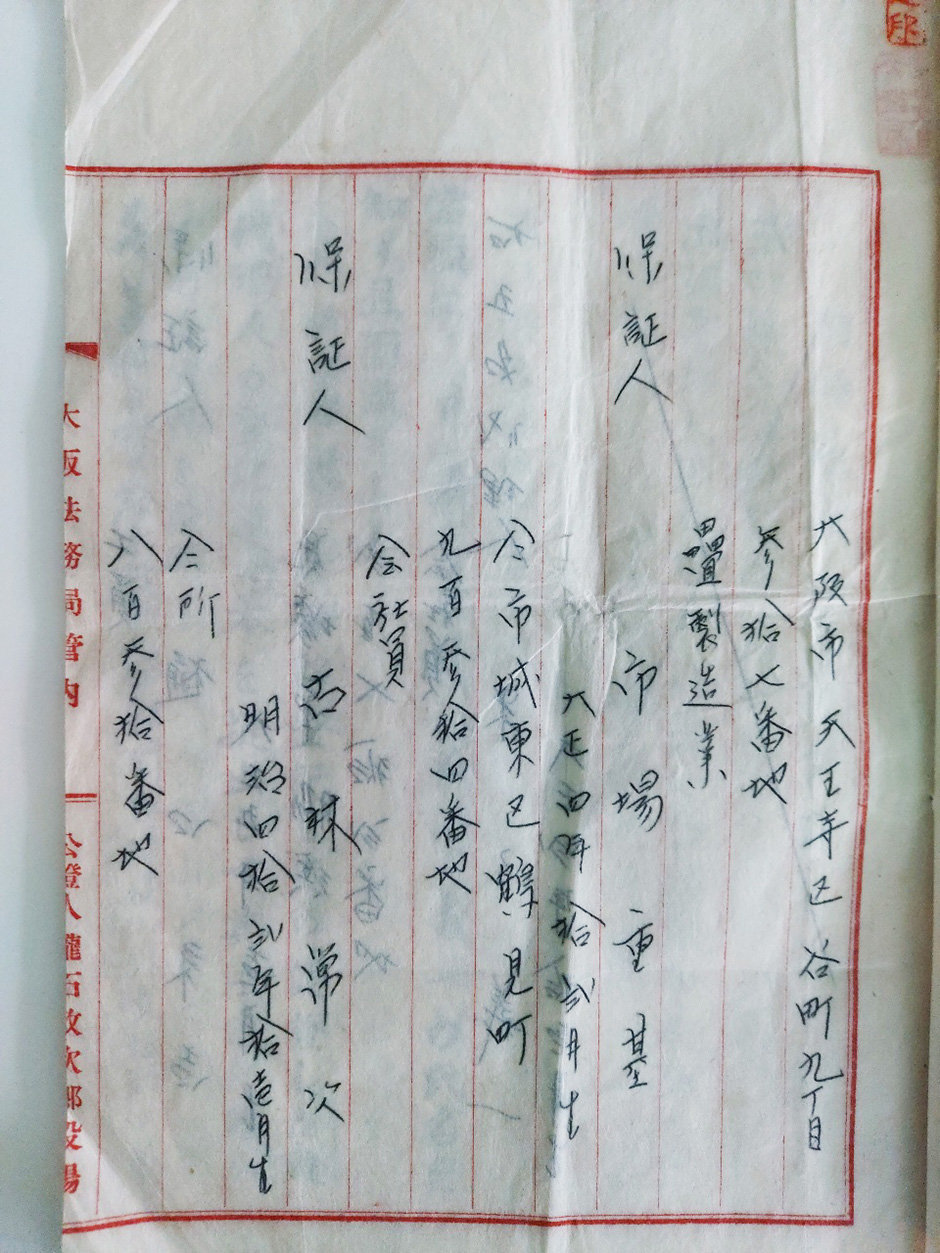 大阪市天王寺区谷町九丁目
参拾七番地
疊製造業
保証人 市場重基
大正四年拾弐月生
仝市城東区鴫見町
九百参拾四番地
会社員
保証人 古林常次
明治四拾弐年拾壱月生
仝所
八百参拾番地
大阪法務局管内
公證人瀧石政次郎役場